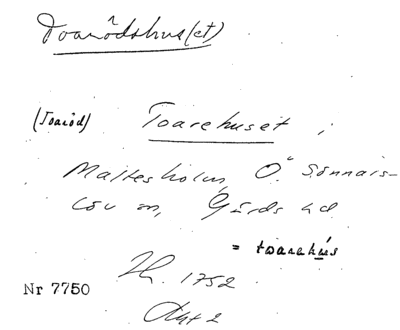 Toarödshus(et)
(Toaröd) Toarehuset i
Maltesholm, Ö. Sönnars-
löv sn, Gärds hd
= toarehús
Jh. 1752
Akt 2
Nr 7750